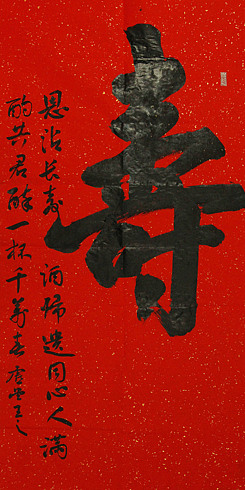 寿
恩沾长寿酒帰遗同心人满
酌共君醉一杯千萬春